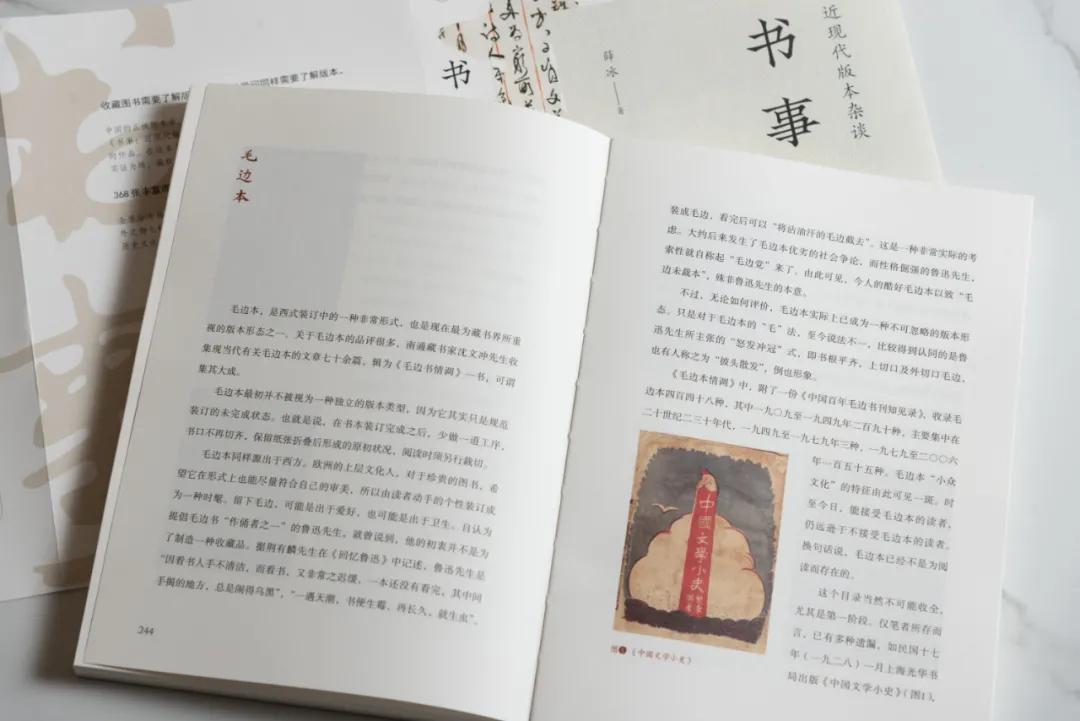 收藏图书需要了解版
同样需要了解版本。
368 张丰富
书
书事
近现代版本杂谈
薛冰——著
毛边本
毛边本，是西式装订中的一种非常形式，也是现在最为藏书界所重
视的版本形态之一。关于毛边本的品评很多，南通藏书家沈文冲先生收
集现当代有关毛边本的文章七十余篇，辑为《毛边书情调》一书，可谓
集其大成。
毛边本最初并不被视为一种独立的版本类型，因为它其实只是规范
装订的未完成状态。也就是说，在书本装订完成之后，少做一道工序，
书口不再切齐，保留纸张折叠后形成的原初状况，阅读时须另行裁切。
毛边本同样源出于西方。欧洲的上层文化人，对于珍贵的图书，希
望它在形式上也能尽量符合自己的审美，所以由读者动手的个性装订成
为一种时髦。留下毛边，可能是出于爱好，也可能是出于卫生。自认为
提倡毛边书“作俑者之一”的鲁迅先生，就曾说到，他的初衷并不是为
了制造一种收藏品。据荆有麟先生在《回忆鲁迅》中记述，鲁迅先生是
“因看书人手不清洁，而看书，又非常之迟缓，一本还没有看完，其中间
手揭的地方，总是闹得乌黑”，“一遇天潮，书便生霉，再长久，就生虫”。
244
装成毛边，看完后可以“将沾油汗的毛边截去”。这是一种非常实际的考
虑。大约后来发生了毛边本优劣的社会争论，而性格倔强的鲁迅先生，
索性就自称起“毛边党”来了。由此可见，今人的酷好毛边本以致“毛
边未裁本”，殊非鲁迅先生的本意。
不过，无论如何评价，毛边本实际上已成为一种不可忽略的版本形
态。只是对于毛边本的“毛”法，至今说法不一，比较得到认同的是鲁
迅先生所主张的“怒发冲冠”式，即书根平齐，上切口及外切口毛边，
也有人称之为“披头散发”，倒也形象。
《毛边本情调》中，附了一份《中国百年毛边书刊知见录》，收录毛
边本四百四十八种，其中一九〇九至一九四九年二百九十种，主要集中在
二十世纪二三十年代，一九四九至一九七九年三种，一九七九至二〇〇六
年一百五十五种。毛边本“小众
文化”的特征由此可见一斑。时
至今日，能接受毛边本的读者，
仍远逊于不接受毛边本的读者。
换句话说，毛边本已经不是为阅
读而存在的。
这个目录当然不可能收全，
尤其是第一阶段。仅笔者所存而
言，已有多种遗漏，如民国十七
年（一九二八）一月上海光华书
局出版《中国文学小史》（图1），
中國文學小史
图1《中國文学小史》